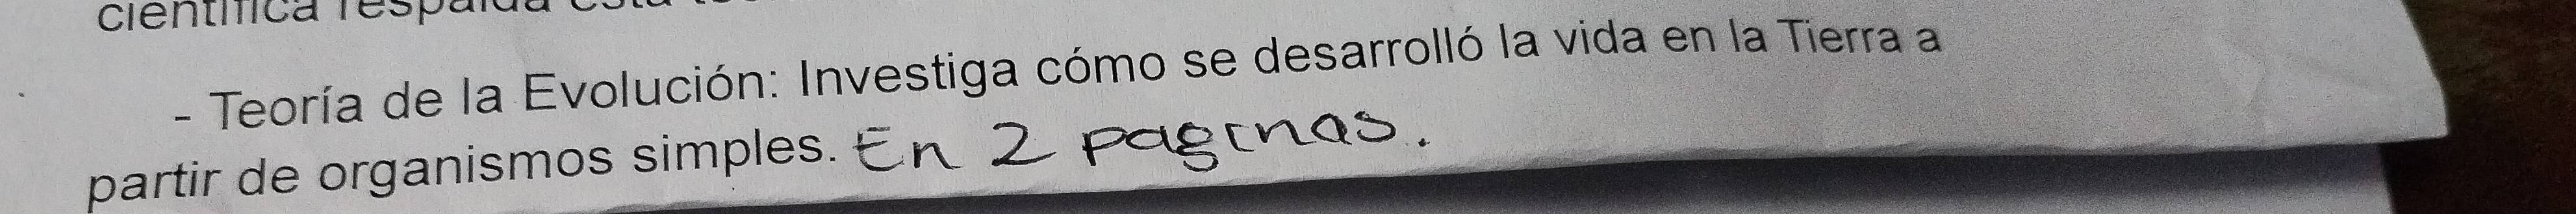 científica respalda
- Teoría de la Evolución: Investiga cómo se desarrolló la vida en la Tierra a
partir de organismos simples. En 2 paginas.